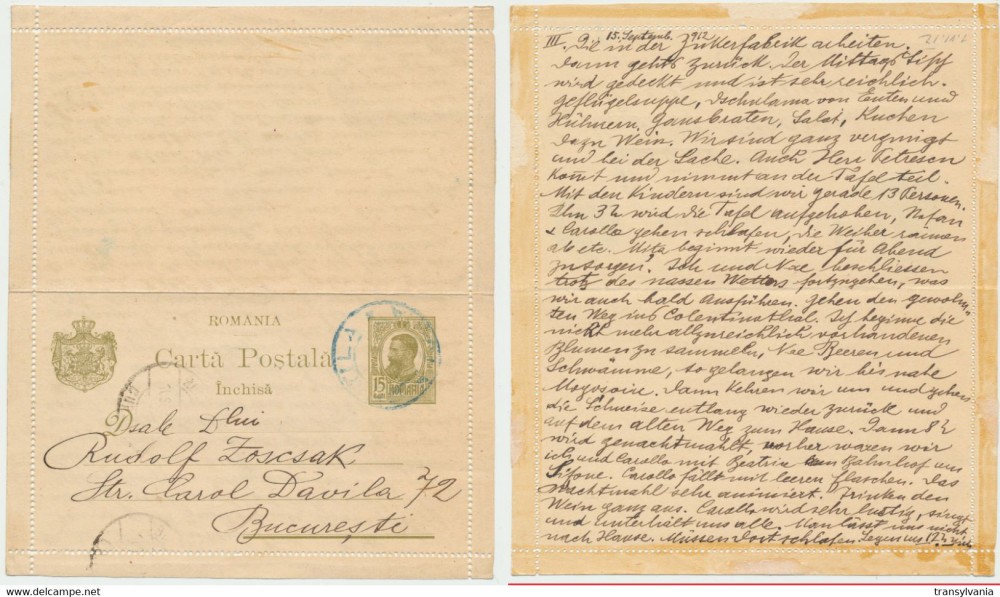 ROMANIA
Cartă Postală
Închisă
15
Dsale Dlui
Rudolf Zoscsak
Str. Carol Davila 72
București
15. Septemb. 912
III. Die in der Zukerfabrik arbeiten.
Dann gehts zurück. Der Mittags Tisch
wird gedeckt und ist sehr reichlich.
Geflügelsuppe, Tschulama von Enten und
Hühnern, Gansbraten, Salat, Kuchen
dazu Wein. Wir sind ganz vergnügt
und bei der Sache. Auch Herr Petrescu
komt und nimmt an der Tafel teil.
Mit den Kindern sind wir gerade 13 Personen.
Um 3 h wird die Tafel aufgehoben,
& Carollo gehen schlafen, die Weiber räumen
ab etc. Mitz beginnt wieder für Abend
zu sorgen, Ich und Nae beschliessen
trotz des nassen Wetters fortzugehen, was
wir auch bald Ausführen. Gehen den gewohn
ten Weg ins Colentinathal. Ich beginne die
nicht mehr allzureichlich vorhandenen
Blumen zu sammeln, Nae Beeren und
Schwämme, so gelangen wir bis nahe
Mogosoaie. Dann kehren wir um und gehen
die entlang wieder zurück und
auf dem alten Weg zum Hause. Dann 8 h
wird genachtmahlt, vorher waren wir
ich und Carollo mit Beatrix am Bahnhof um
Sifone. Carollo fällt mit leeren flaschen. Das
Nachtmahl sehr animiert. Trinken den
Wein ganz aus. Carollo wird sehr lustig, singt
und unterhält uns alle. Man lässt uns nicht
nach Hause. Müssen dort schlafen. Legen uns 12 h
transylvania